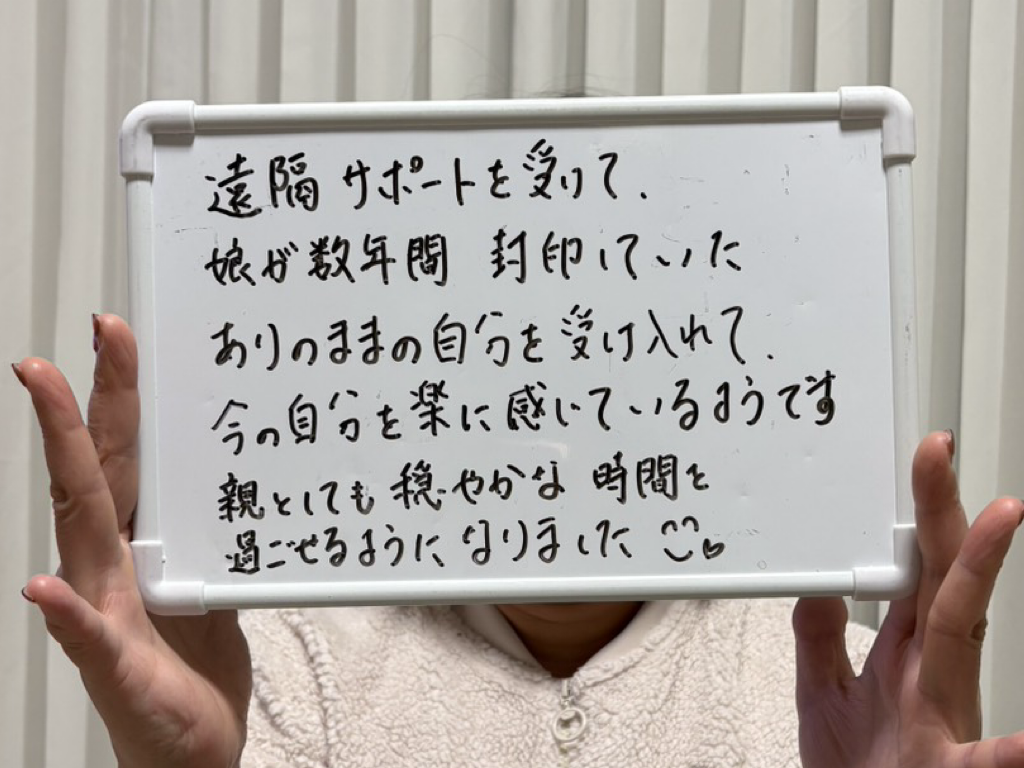 遠隔サポートを受けて、
娘が数年間 封印していた
ありのままの自分を受け入れて、
今の自分を楽に感じているようです
親としても穏やかな時間を
過ごせるようになりました